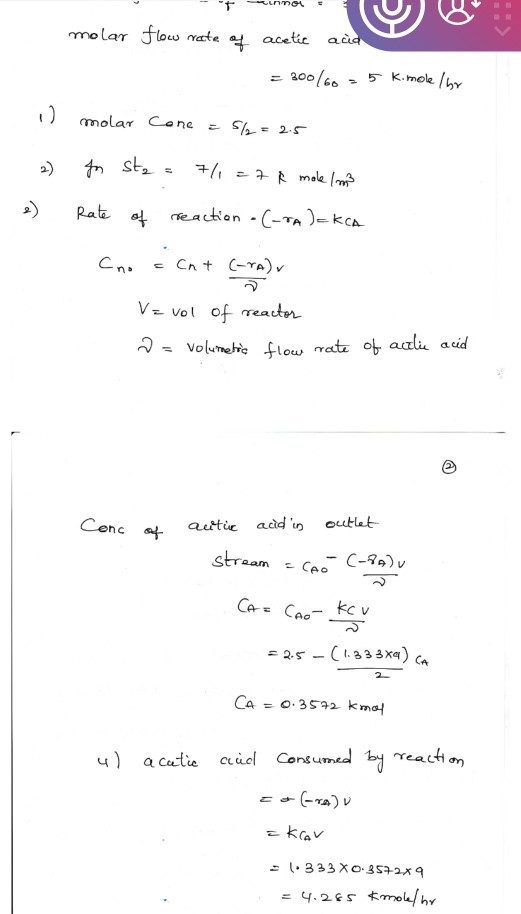 molar flow rate of acetic acid
= 300/60 = 5 K.mole/hr
1) molar Conc = 5/2 = 2.5
2) In St2 = 7/1 = 7 k mole/m³
2) Rate of reaction = (-rA) = kCA
Cno = Cn + (-rA)v/ν
V = vol of reactor
ν = volumetric flow rate of acetic acid
②
Conc of acetic acid in outlet
stream = CAO - (-rA)v/ν
CA = CAO - kcv/ν
= 2.5 - (1.333x9)/2 CA
CA = 0.3572 kmol
4) acetic acid consumed by reaction
= (-rA)v
= kCAV
= 1.333 x 0.3572 x 9
= 4.285 kmole/hr